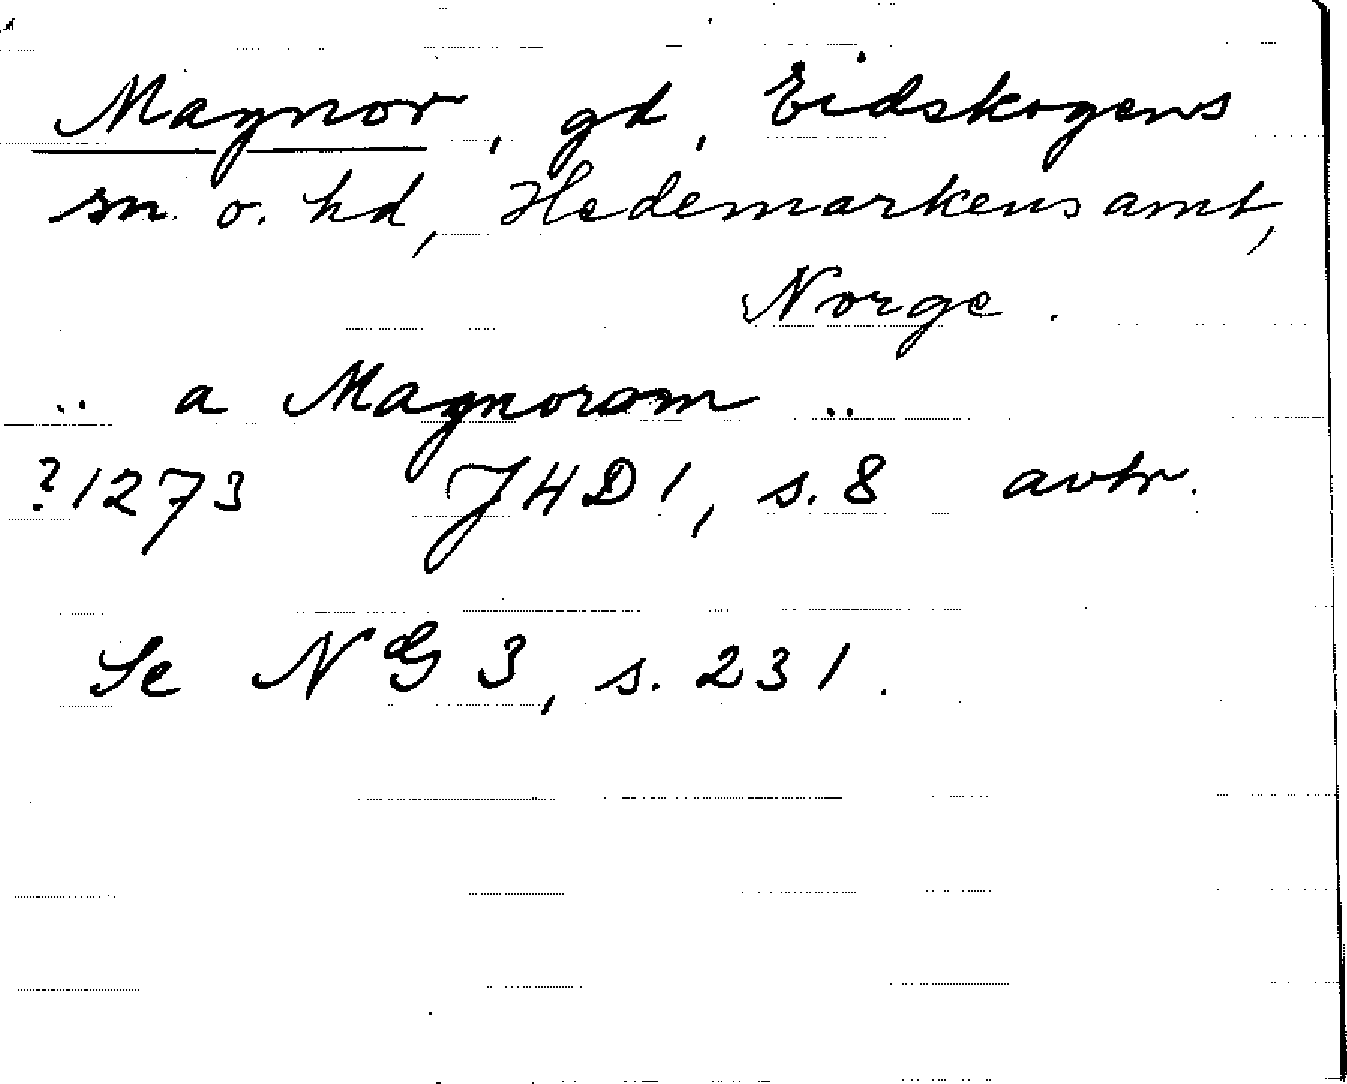 Magnor, gd, Eidskogens
sn. o. hd, Hedemarkens amt,
Norge.
.. a Magnorom ..
?1273 JHD 1, s. 8 avtr.
Se NG 3, s. 231.